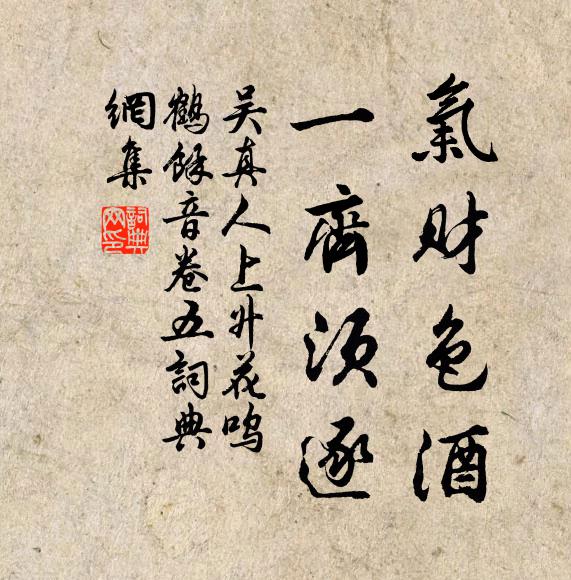 氣財色酒
一齊須逐
吳真人上升花鸣
鶴餘音卷五詞典
網集
詞典网印